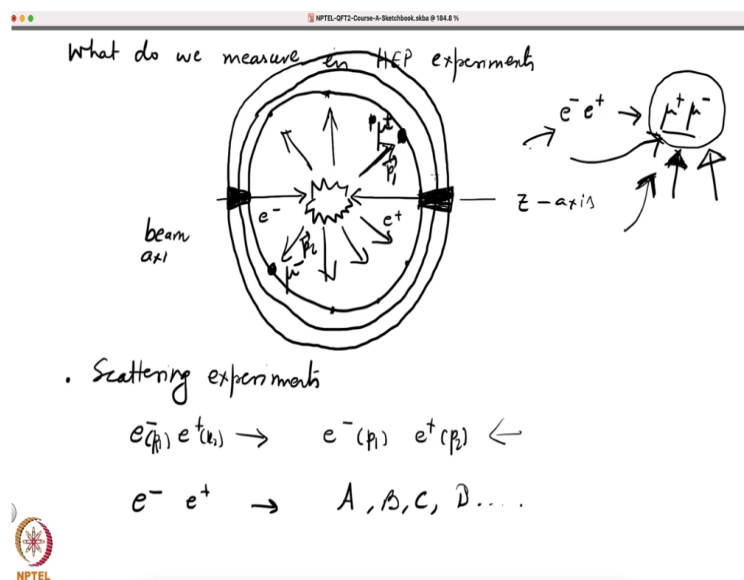 NPTEL-QFT2-Course-A-Sketchbook.skba @ 184.8 %
What do we measure in HEP experiments
e⁻ e⁺ → μ⁺ μ⁻
μ⁺
p₁
e⁻ e⁺
z - axis
beam
axi
p₂
μ⁻
. Scattering experiments
e⁻(k₁) e⁺(k₂) → e⁻(p₁) e⁺(p₂) ←
e⁻ e⁺ → A, B, C, D....
NPTEL